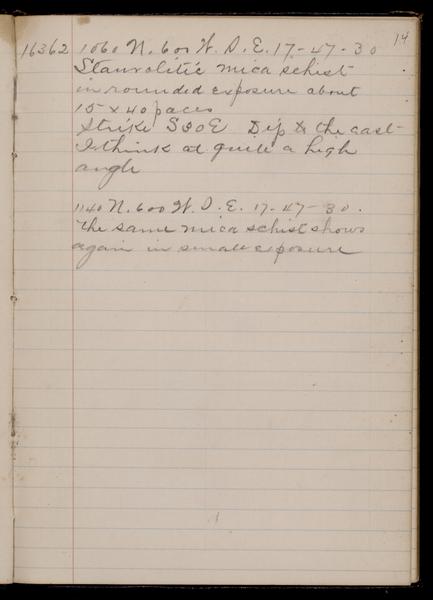 14
16362 1060 N. 600 W. S.E. 17-47-30
Staurolitic mica schist
in rounded exposure about
15 x 40 paces
Strike S30E Dip to the east
I think at quite a high
angle
1140 N. 600 W. S.E. 17-47-30.
The same mica schist shows
again in small exposure